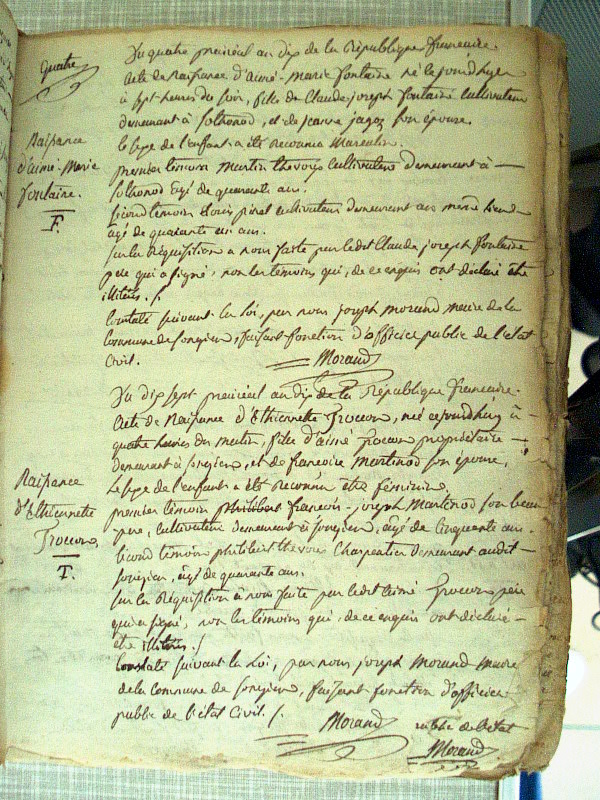 quatre
Du quatre prairial an dix de la République française.
Acte de Naissance d'aimé-Marie fontaine né le jourd'huy
à sept heures du soir, fils de Claude joseph fontaine cultivateur
demeurant à Sothonod, et de jeanne jagoz son épouse,
le sexe de l'enfant a été reconnu Masculin.
Naissance
d'aimé-Marie
fontaine.
F.
premier temoin Martin thevoz cultivateur demeurant à
Sothonod âgé de quarante ans.
second témoin Louis pinet cultivateur demeurant au même lieu
âgé de quarante six ans.
sur la Réquisition a nous faite par ledit Claude joseph fontaine
père qui a signé, non les témoins qui, de ce enquis ont déclaré être
illitérés. /.
Constaté suivant la loi, par nous joseph morand maire de la
commune de songieu, faisant fonction d'officier public de l'état
Civil.
Morand
Du dix sept prairial an dix de la République française.
Acte de Naissance d'Ethiennette Trocon, née ce jourd'huy à
quatre heures du matin, fille d'aimé Trocon propriétaire
demeurant à songieu, et de françoise Martinod son épouse,
Le sexe de l'enfant a été Reconnu être féminin.
Naissance
d'Ethiennette
Trocon,
T.
premier témoin françois-joseph Martinod son beau
père, cultivateur demeurant à songieu, âgé de Cinquante ans
second témoin philibert thevoux Charpentier demeurant audit
songieu, âgé de quarante ans.
sur la Réquisition à nous faite par ledit aimé Trocon père
qui a signé, non les témoins qui, de ce enquis ont déclaré
être illitérés. /
Constaté suivant la Loi, par nous joseph Morand Maire
de la commune de songieu, faisant fonction d'officier
public de l'état Civil. /.
Morand
public de l'état
Morand